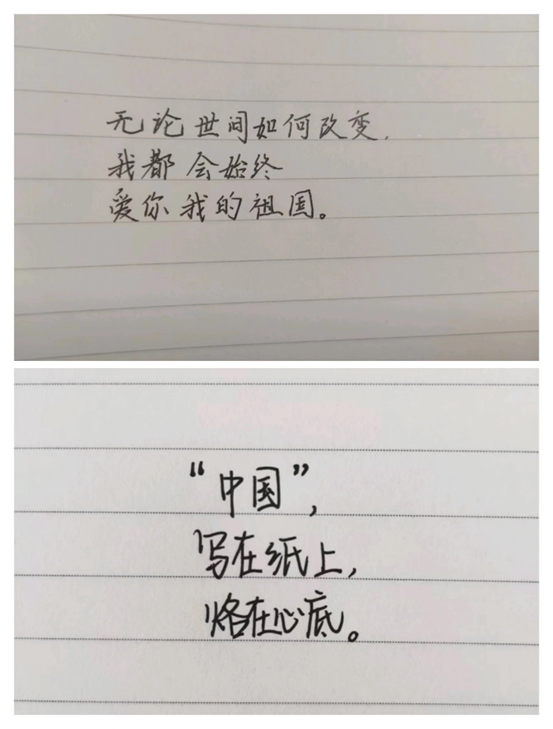 无论世间如何改变,
我都会始终
爱你我的祖国。
“中国”,
写在纸上,
烙在心底。